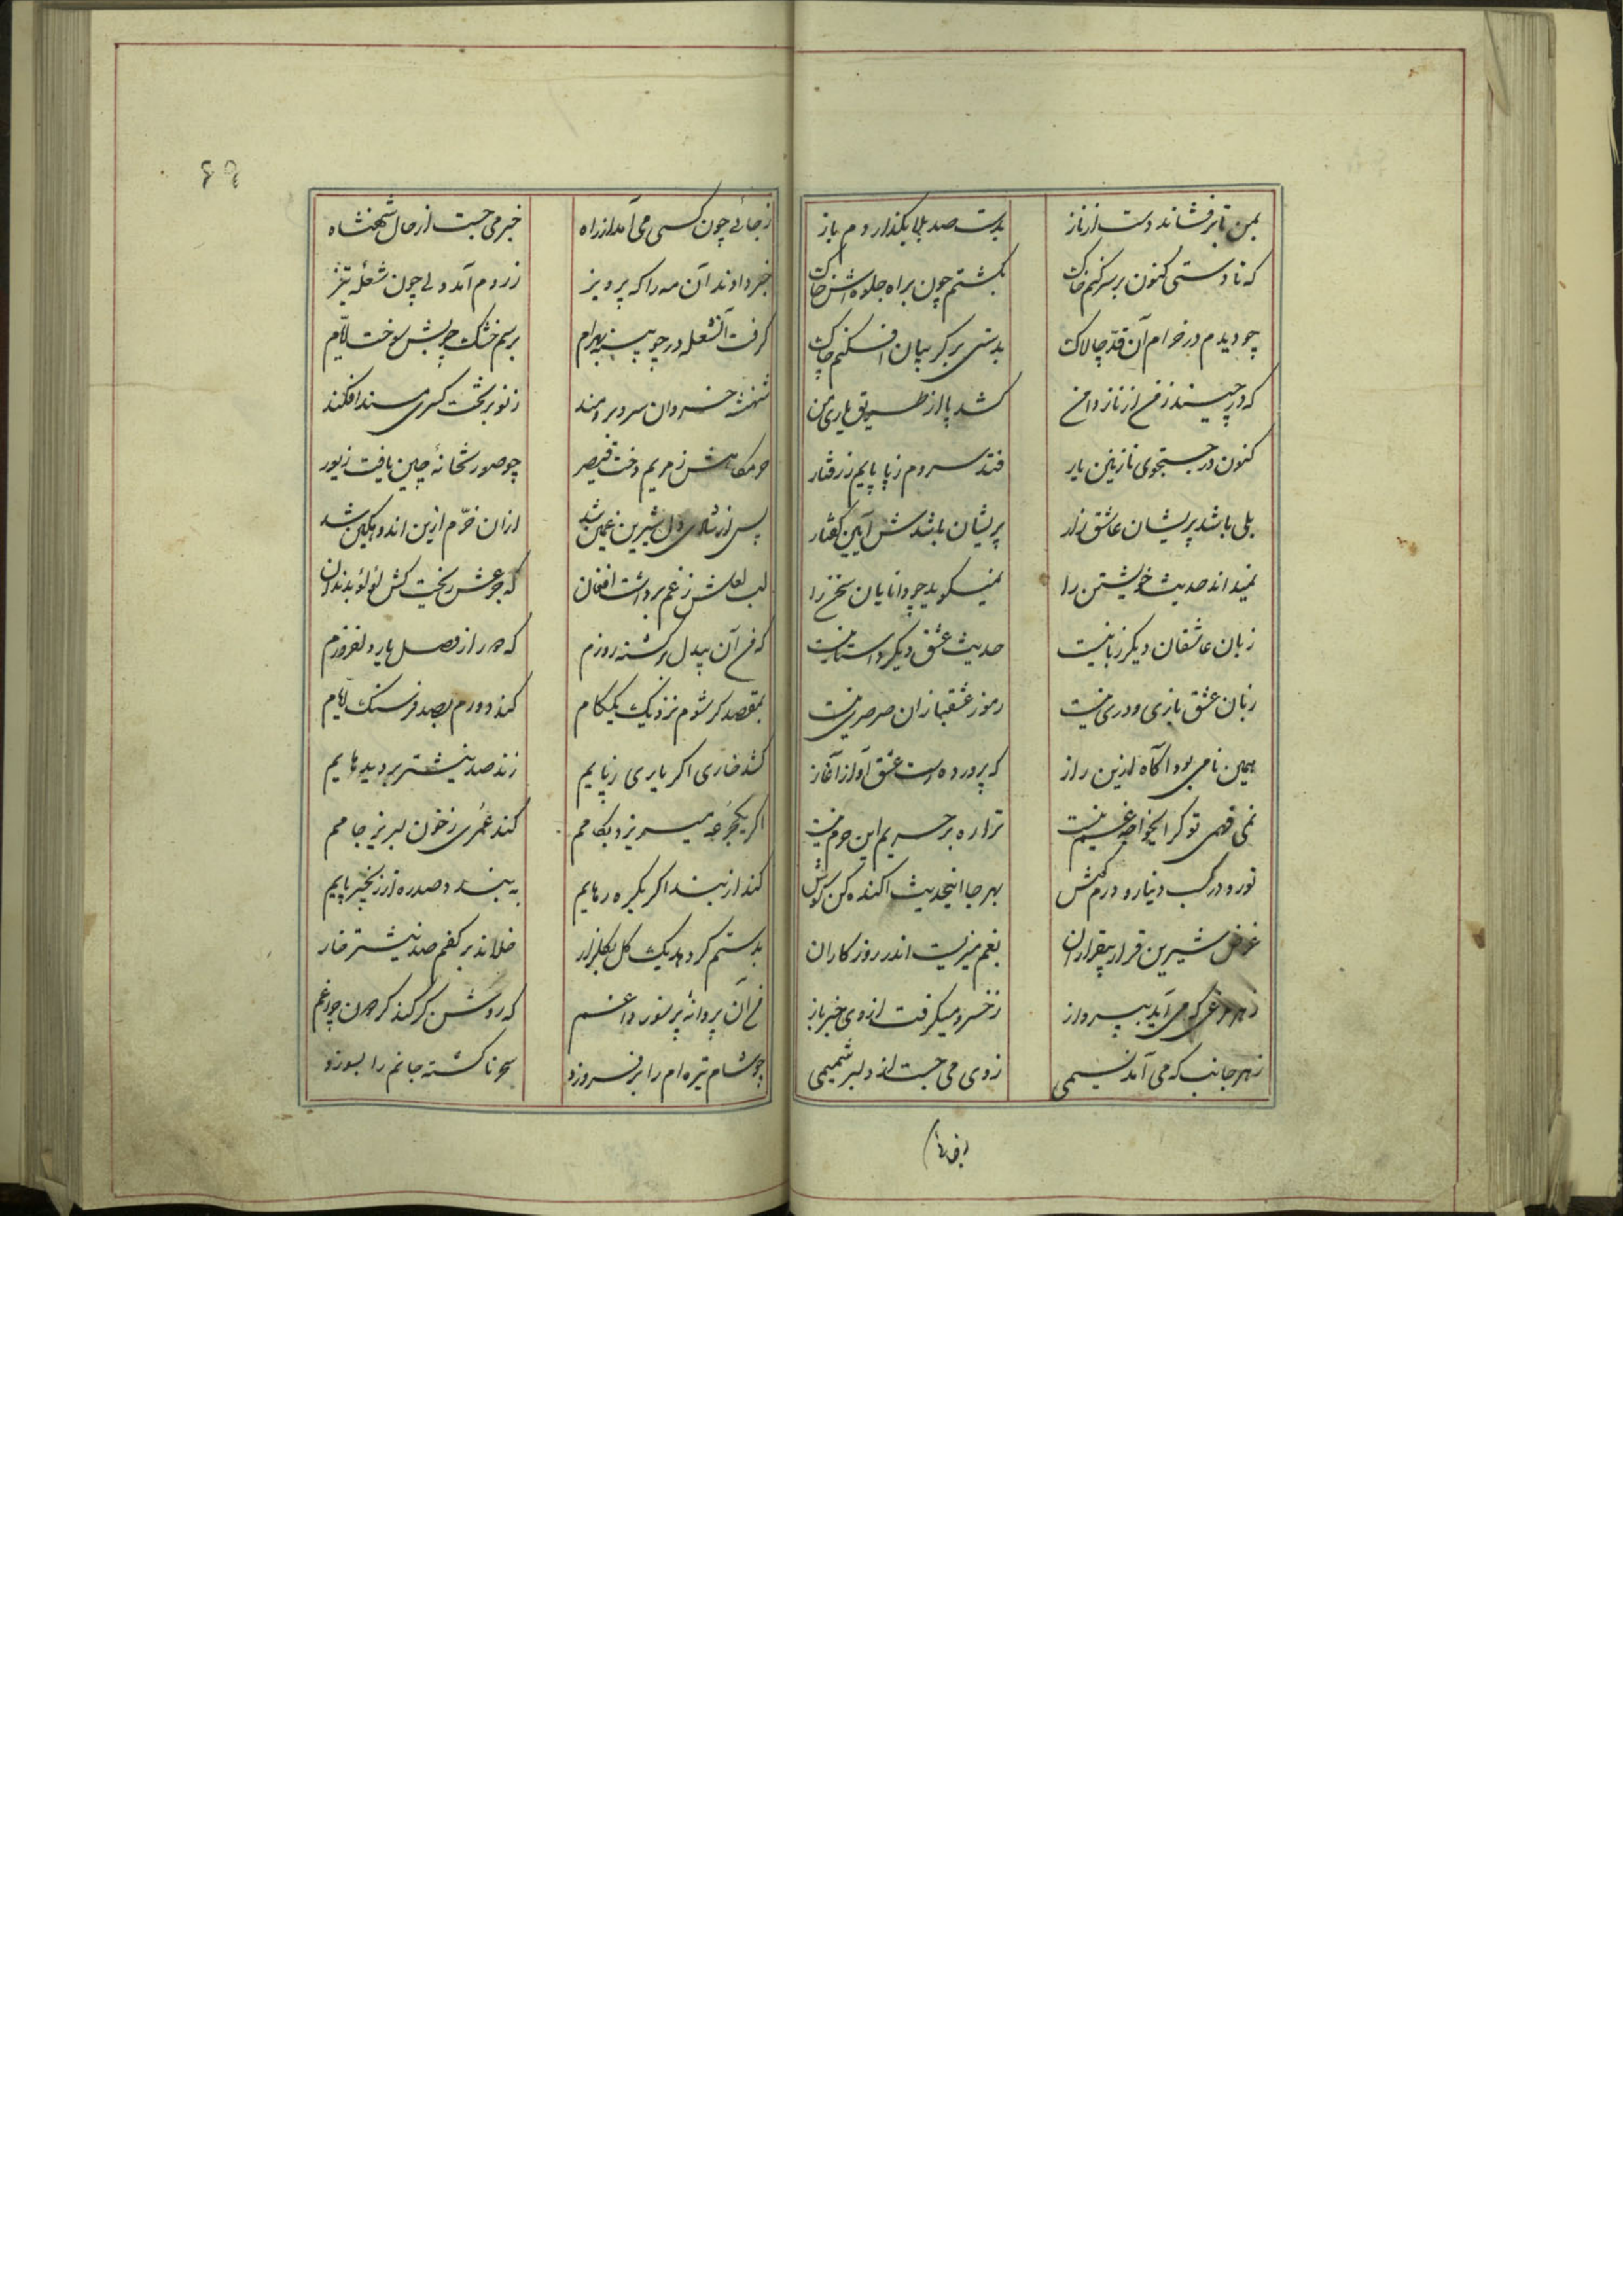 بمن تا برفشاند دست از ناز بدست صد بلا بگذاردم باز
که تا دستی کنون بر سر کنم خاک نگشتم چون براه جلوه‌اش خاک
چو دیدم در خرام آن قد چالاک بدستی بر گریبان افکنم چاک
که در چیند ز من از ناز دامن کشد پا از طریق یاری من
کنون در جستجوی نازنین یار فتد سر دم ز پا پایم ز رفتار
بلی باشد پریشان عاشق زار پریشان باشدش آیین گفتار
نمیداند حدیث خویشتن را نمیگوید چو دانایان سخن را
زبان عاشقان دیگر زبانیست حدیث عشق دیگر داستانیست
زبان عشق تازی و دری نیست رموز عشقبازان صرصری نیست
همین نامی بود آگاه ازین راز که پرورده است عشق او از آغاز
نمی فهمی تو گر ایخواجه غم نیست ترا ره بر حریم این حرم نیست
تو رو در کسب دینار و درم کوش بهر جا اینحدیث آکنده کن گوش
غرض شیرین قرار بیقراران بغم میزیست اندر روزگاران
ز هر مرغی که می آید بپرواز ز خسرو میگرفت از وی خبر باز
ز هر جانب که می آمد نسیمی ز وی می جست از دلبر شمیمی
ز جائی چون کسی می آمد از راه خبر می جست از حال شهنشاه
خبر دادند آن مه را که پرویز ز روم آمد ولی چون شعله تیز
گرفت آنشعله در چوبینه بهرام برسم خشک چوبش سوخت ایام
شهنشه خسروان سرو برومند ز نو بر تخت کسری مسند افکند
ز مریم دخت قیصر چو صورتخانه چین یافت زیور
پس از شادی دل شیرین غمین شد ازان خرّم ازین اندوهگین شد
لب لعلش ز غم برداشت افغان که جزعش ریخت کش لؤلؤ بدندان
که من آن بیدل برگشته روزم که دور از وصل یار دلفروزم
بمقصد گر شوم نزدیک یکگام کند دورم بصد فرسنگ ایام
کشد خاری اگر یاری ز پایم زند صد نیشتر بر دیدهایم
اگر یکجرعه میریزد بکامم کند عمری ز خون لبریز جامم
کند از بند اگر یکره رهایم ببندد صد ره از زنجیر پایم
بدستم گر دهد یک گل بگلزار خلاند بر کفم صد نیشتر خار
من آن پروانهٔ پر سوز داغم که روشن گر کند گردون چراغم
چو شام تیره‌ام را بر فروزد سحر ناگشته جانم را بسوزد